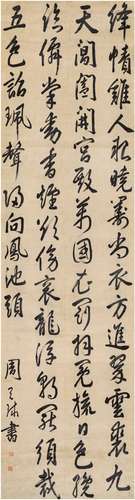 絳幘雞人報曉籌尚衣方進翠雲裘九
天閶闔開宮殿萬國衣冠拜冕旒日色纔
臨仙掌動香煙欲傍袞龍浮朝罷須裁
五色詔珮聲歸向鳳池頭
周天球書